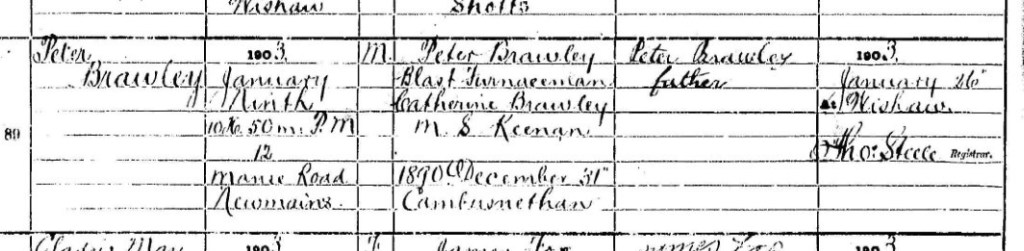 Wishaw Shotts
Peter 1903 M. Peter Brawley Peter Brawley 1903
Brawley January Blast Furnaceman father January 26"
Ninth Catherine Brawley at Wishaw
10h. 50m. P.M M. S. Keenan
89 Thos. Steele Registrar.
12
Manse Road 1890 December 31st
Newmains. Cambusnethan
Gladys May 1903 F. James Fox James Fox 1903